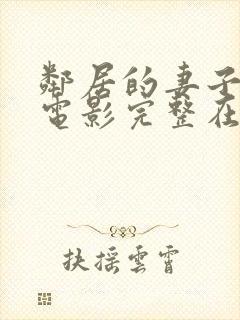 鄰居的妻子
電影完整在
扶摇雲霄